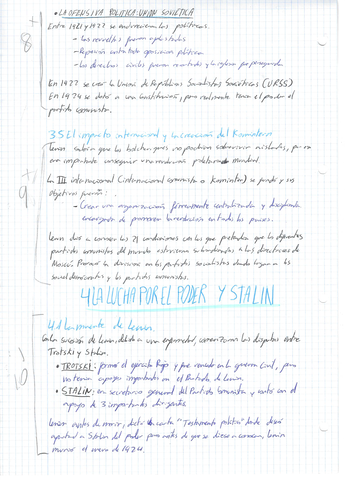 • LA OFENSIVA POLITICA: UNION SOVIÉTICA
8
Entre 1921 y 1922 se endurecieron las políticas.
- Las revueltas fueron aplastadas
- Represión contra toda oposición política
- Los derechos civiles fueron recortados y la iglesia perseguida
En 1922 se creó la Unión de Repúblicas Socialistas Soviéticas (URSS)
En 1924 se dotó a una Constitución, pero realmente tenía el poder el
partido comunista.
3.5 El impacto internacional y la creación del Komintern
Lenin sabía que los bolcheviques no podrían sobrevivir aislados, para
era importante conseguir una revolución proletaria mundial.
9
La III internacional (internacional comunista o Komintern) se fundó y sus
objetivos fueron:
- Crear una organización férreamente centralizada y disciplinada
encargada de promover la revolución en todos los países.
Lenin dio a conocer las 21 condiciones con las que pretendía que los diferentes
partidos comunistas del mundo estuvieran subordinados a las directrices de
Moscú. Provocó la división en los partidos socialistas dando lugar a los
socialdemócratas y los partidos comunistas.
4 LA LUCHA POR EL PODER Y STALIN
4.1 La muerte de Lenin.
10
la sucesión de Lenin, debido a una enfermedad, comenzaron las disputas entre
Trotski y Stalin.
• TROTSKI: formó el ejército Rojo y fue vencedor en la guerra Civil, pero
no tenía apoyos importantes en el Partido de Lenin.
• STALIN: era secretario general del Partido Comunista y contó con el
apoyo de 3 importantes dirigentes.
Lenin antes de morir, dictó su carta "Testamento político" donde deseó
apartar a Stalin del poder pero antes de que se diese a conocer, Lenin
murió el enero de 1924.